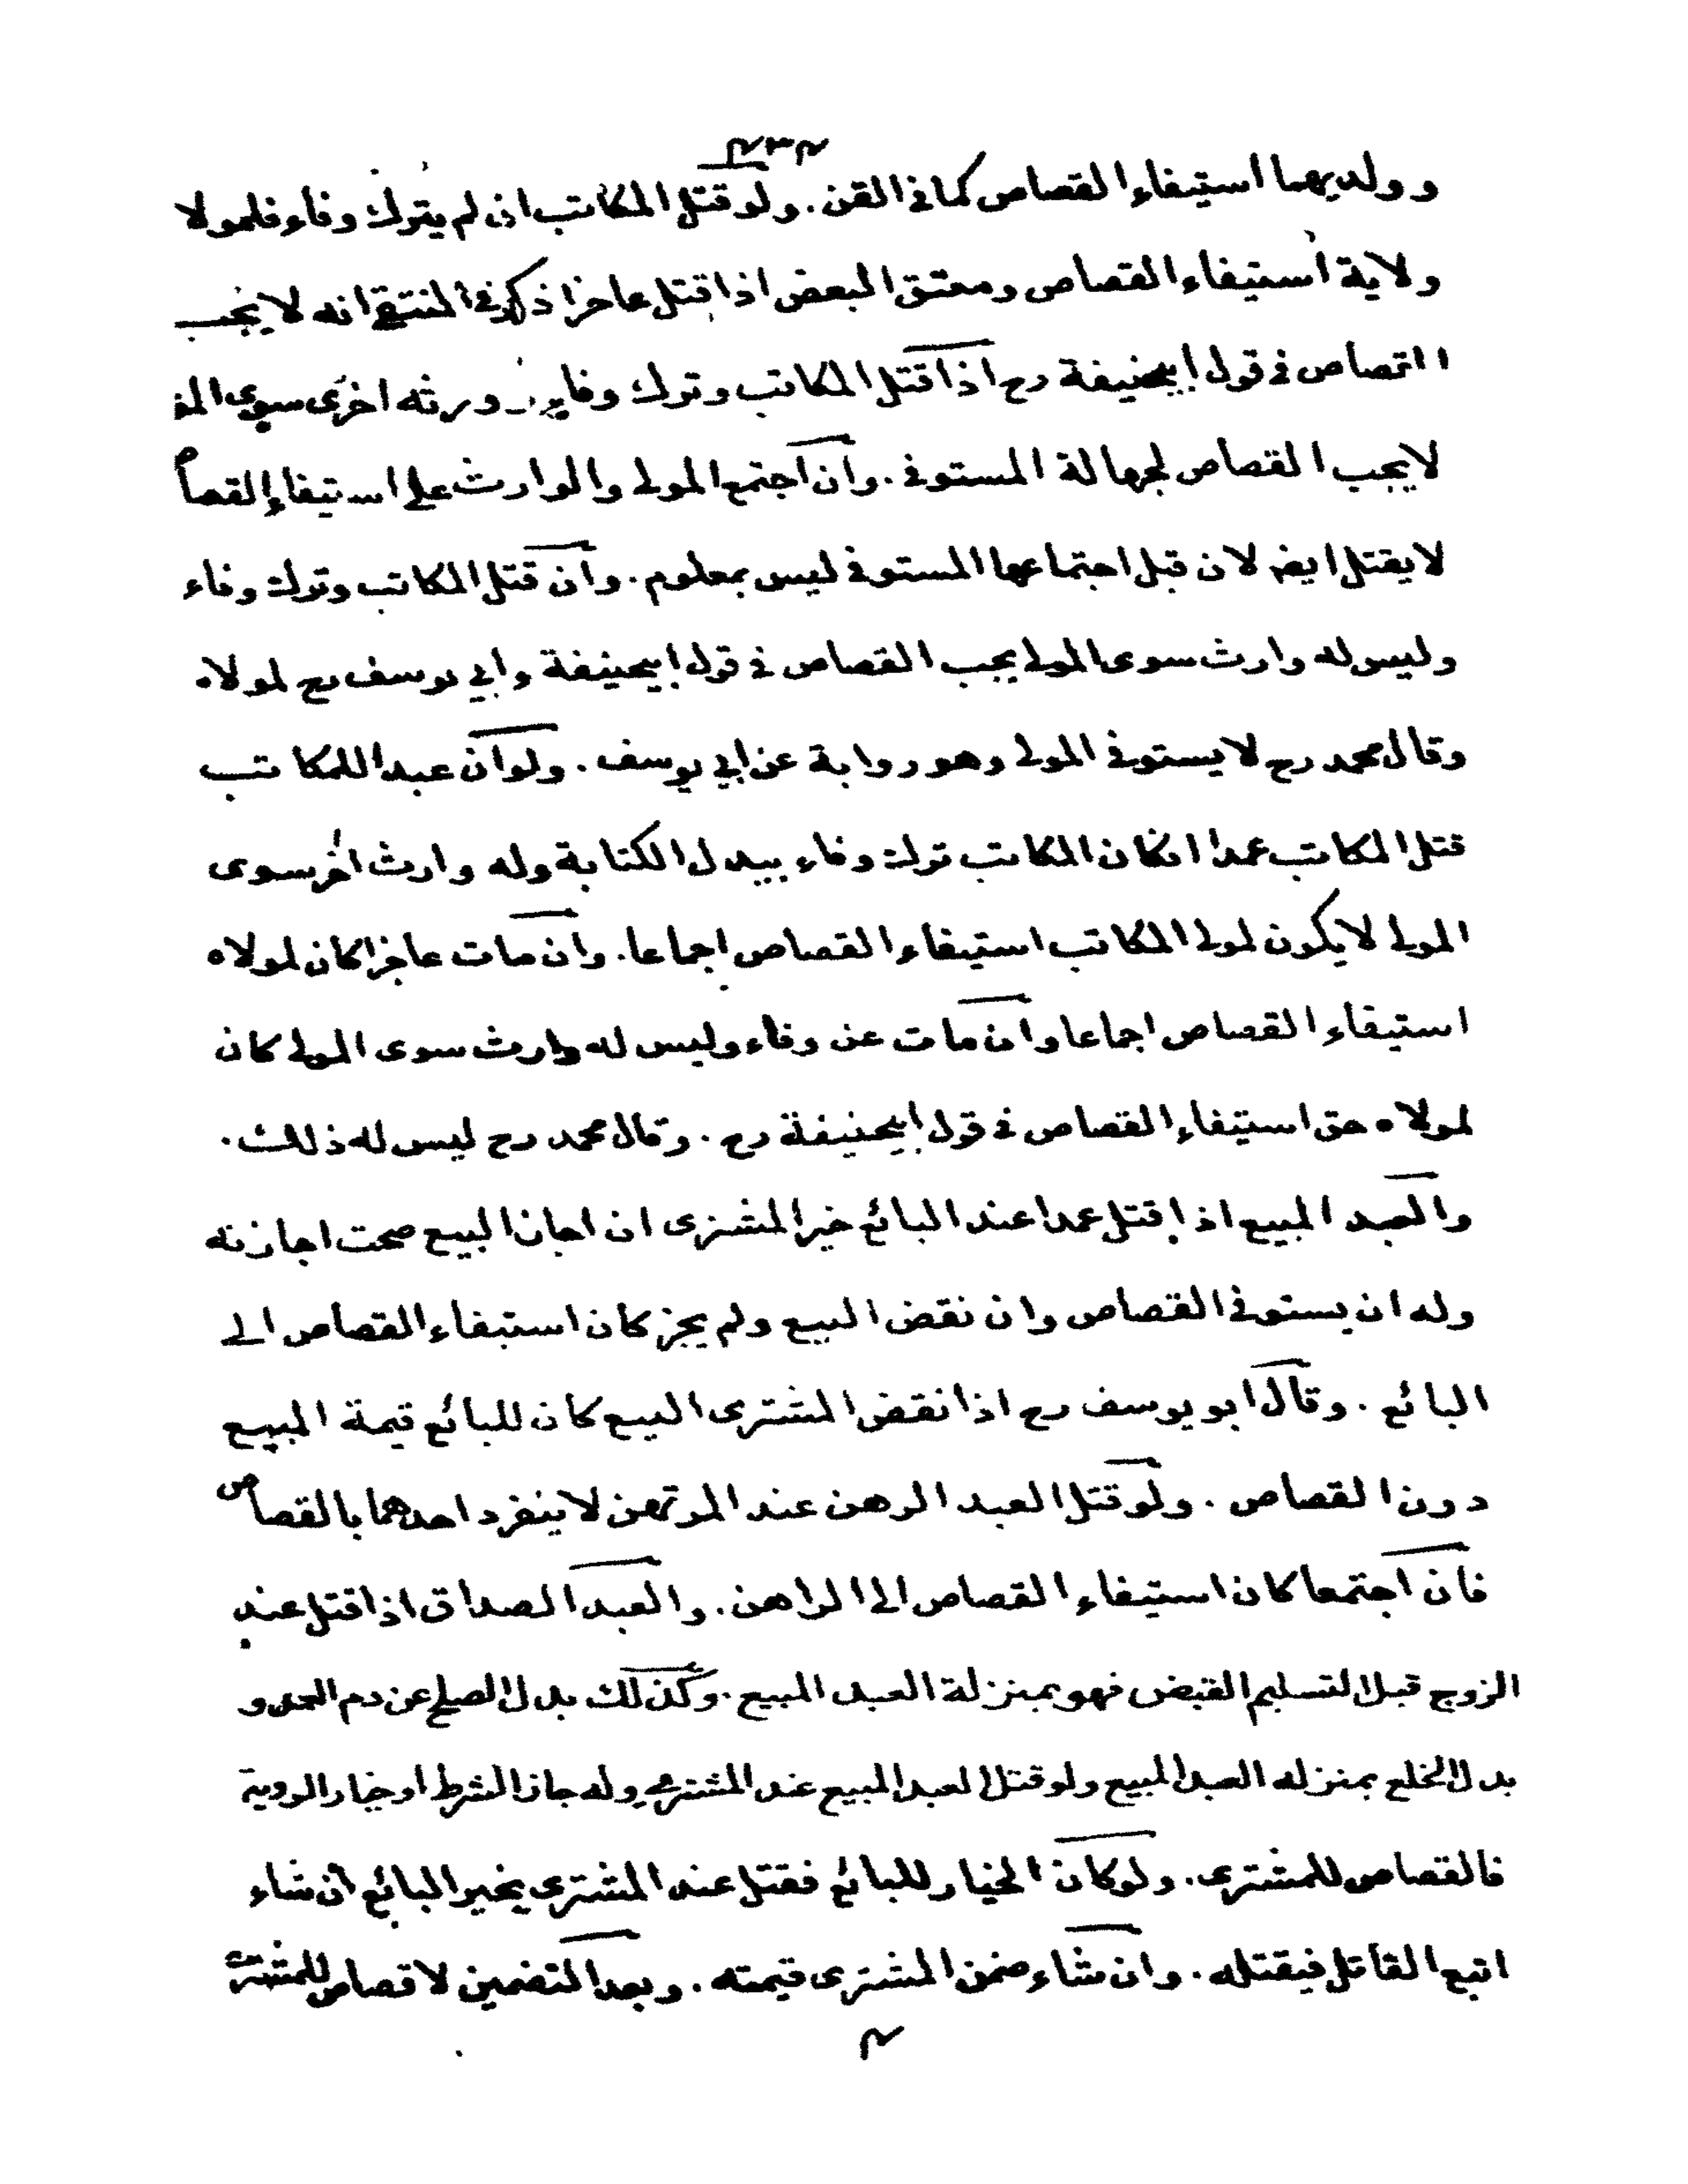 ٢٣٢
وولديهما استيفاء القصاص كما في القن. ولو قتل المكاتب ان لم يترك وفاء فلمولا
ولاية استيفاء القصاص ومعتق البعض اذا قتل عاجزا ذكر في المنتقى انه لا يجب
القصاص في قول ابيحنيفة رح اذا قتل المكاتب وترك وفاء ورثه اخرى سوى المو
لا يجب القصاص لجهالة المستوفي. وان اجتمع المولى والوارث على استيفاء القصاص
لا يقتل ايضه لان قبل اجتماعها المستوفي ليس بمعلوم. وان قتل المكاتب وترك وفاء
وليس له وارث سوى المولى يجب القصاص في قول ابيحنيفة وابي يوسف رح لمولاه
وقال محمد رح لا يستوفي المولى وهو رواية عن ابي يوسف. ولو ان عبدا للمكاتب
قتل المكاتب عمدا انكان المكاتب ترك وفاء ببدل الكتابة وله وارث اخر سوى
المولى لا يكون لمولى المكاتب استيفاء القصاص اجماعا. وان مات عاجزا كان لمولاه
استيفاء القصاص اجماعا وان مات عن وفاء وليس له وارث سوى المولى كان
لمولاه حق استيفاء القصاص في قول ابيحنيفة رح. وقال محمد رح ليس له ذلك.
والعبد المبيع اذا قتل عمدا عند البائع خير المشتري ان اجاز البيع صحت اجازته
وله ان يستوفي القصاص وان نقض البيع ولم يجز كان استيفاء القصاص الى
البائع. وقال ابو يوسف رح اذا نقض المشتري البيع كان للبائع قيمة المبيع
دون القصاص. ولو قتل العبد الرهن عند المرتهن لا ينفرد احدهما بالقصاص
فان اجتمعا كان استيفاء القصاص الى الراهن. والعبد الصداق اذا قتل عند
الزوج قبل التسليم القبض فهو بمنزلة العبد المبيع. وكذلك بدل الصلح عن دم العمد و
بدل الخلع بمنزله العبد المبيع ولو قتل العبد المبيع عند المشتري وله جاز الشرط او خيار الروية
فالقصاص للمشتري. ولو كان الخيار للبائع فقتل عند المشتري يخير البائع ان شاء
اتبع القاتل فيقتله. وان شاء ضمن المشتري قيمته. وبعد التضمين لا قصاص للمشتري